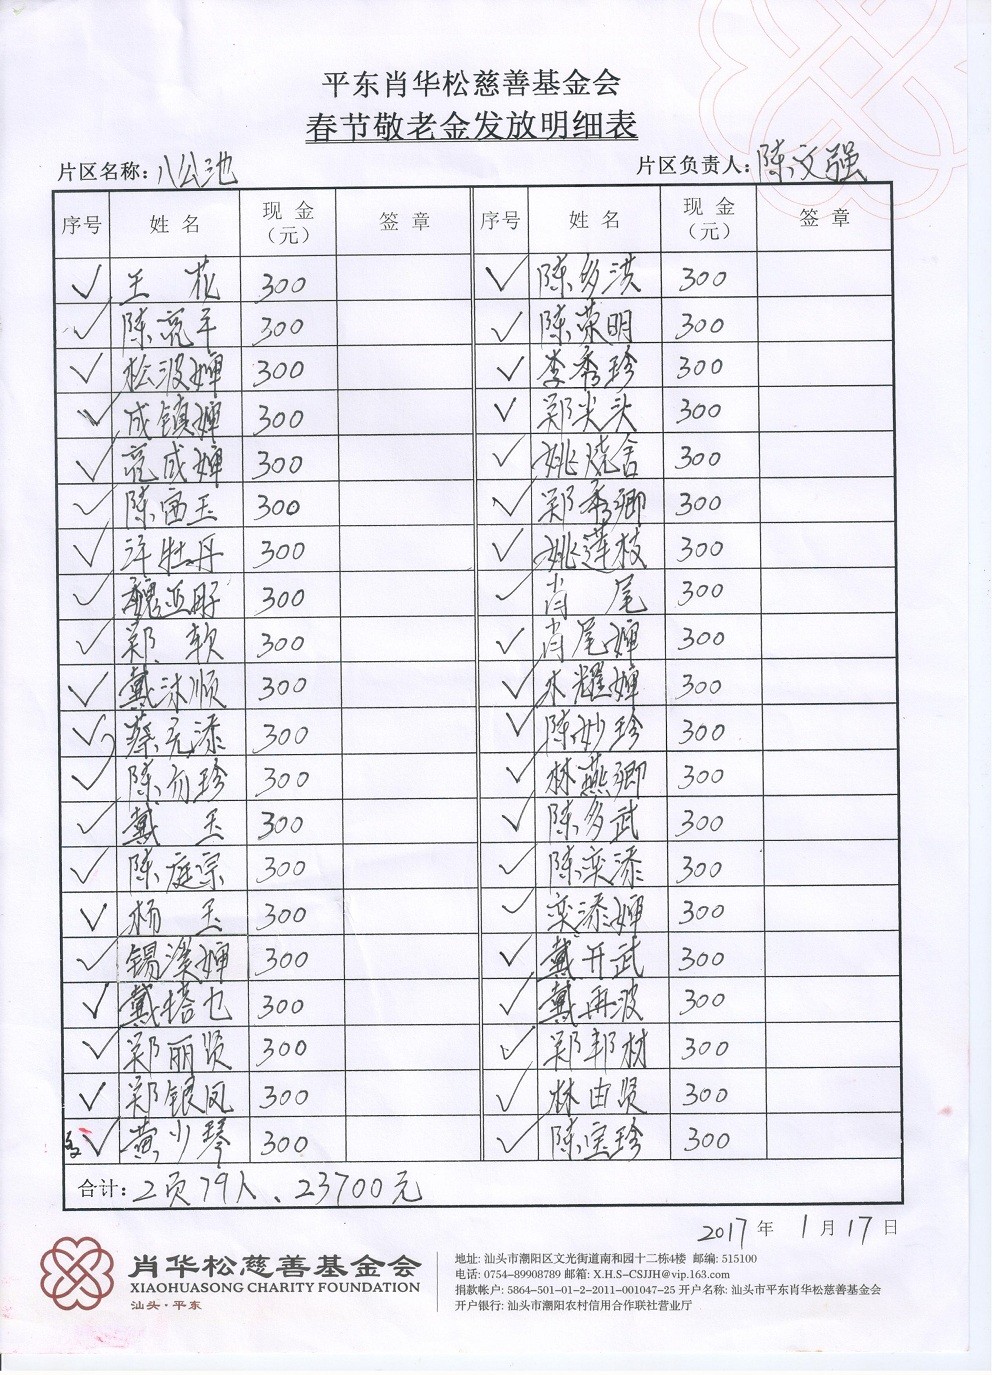 平东肖华松慈善基金会
春节敬老金发放明细表
片区名称: 八公池 片区负责人: 陈文强
序号 姓名 现金(元) 签章 序号 姓名 现金(元) 签章
✓ 王花 300 ✓ 陈多洪 300
✓ 陈亮平 300 ✓ 陈荣明 300
✓ 松波婵 300 ✓ 李秀珍 300
✓ 成镇婵 300 ✓ 郑尖头 300
✓ 亮成婵 300 ✓ 姚烧舍 300
✓ 陈宙玉 300 ✓ 郑秀卿 300
✓ 洋牡丹 300 ✓ 姚莲枝 300
✓ 300 ✓ 肖尾 300
✓ 郑软 300 ✓ 肖尾婵 300
✓ 戴沐顺 300 ✓ 木耀婵 300
✓ 蔡元漆 300 ✓ 陈妙珍 300
✓ 陈勿珍 300 ✓ 林燕卿 300
✓ 戴玉 300 ✓ 陈多武 300
✓ 陈庭宗 300 ✓ 陈栾添 300
✓ 杨玉 300 ✓ 栾添婵 300
✓ 锡溪婵 300 ✓ 戴开武 300
✓ 戴塔乜 300 ✓ 戴再波 300
✓ 郑丽贤 300 ✓ 郑邦材 300
✓ 郑银凤 300 ✓ 林由贤 300
✓ 黄少琴 300 ✓ 陈宝珍 300
合计: 2页79人、23700元
2017年1月17日
肖华松慈善基金会
XIAOHUASONG CHARITY FOUNDATION
汕头·平东
地址: 汕头市潮阳区文光街道南和园十二栋4楼 邮编: 515100
电话: 0754-89908789 邮箱: X.H.S-CSJJH@vip.163.com
捐款帐户: 5864-501-01-2-2011-001047-25 开户名称: 汕头市平东肖华松慈善基金会
开户银行: 汕头市潮阳农村信用合作联社营业厅